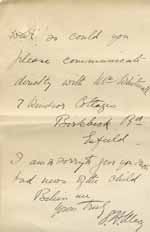 so could you
please communicate
directly with Mrs
7 Windsor Cottages
Birkbeck Rd
Enfield
I am sorry to you
bad news of the child
Believe me
Yours truly